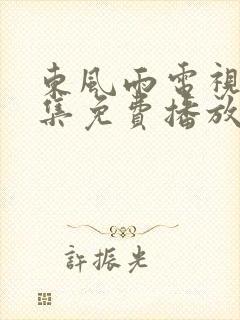 東風雨電視
集免費播放
許振光